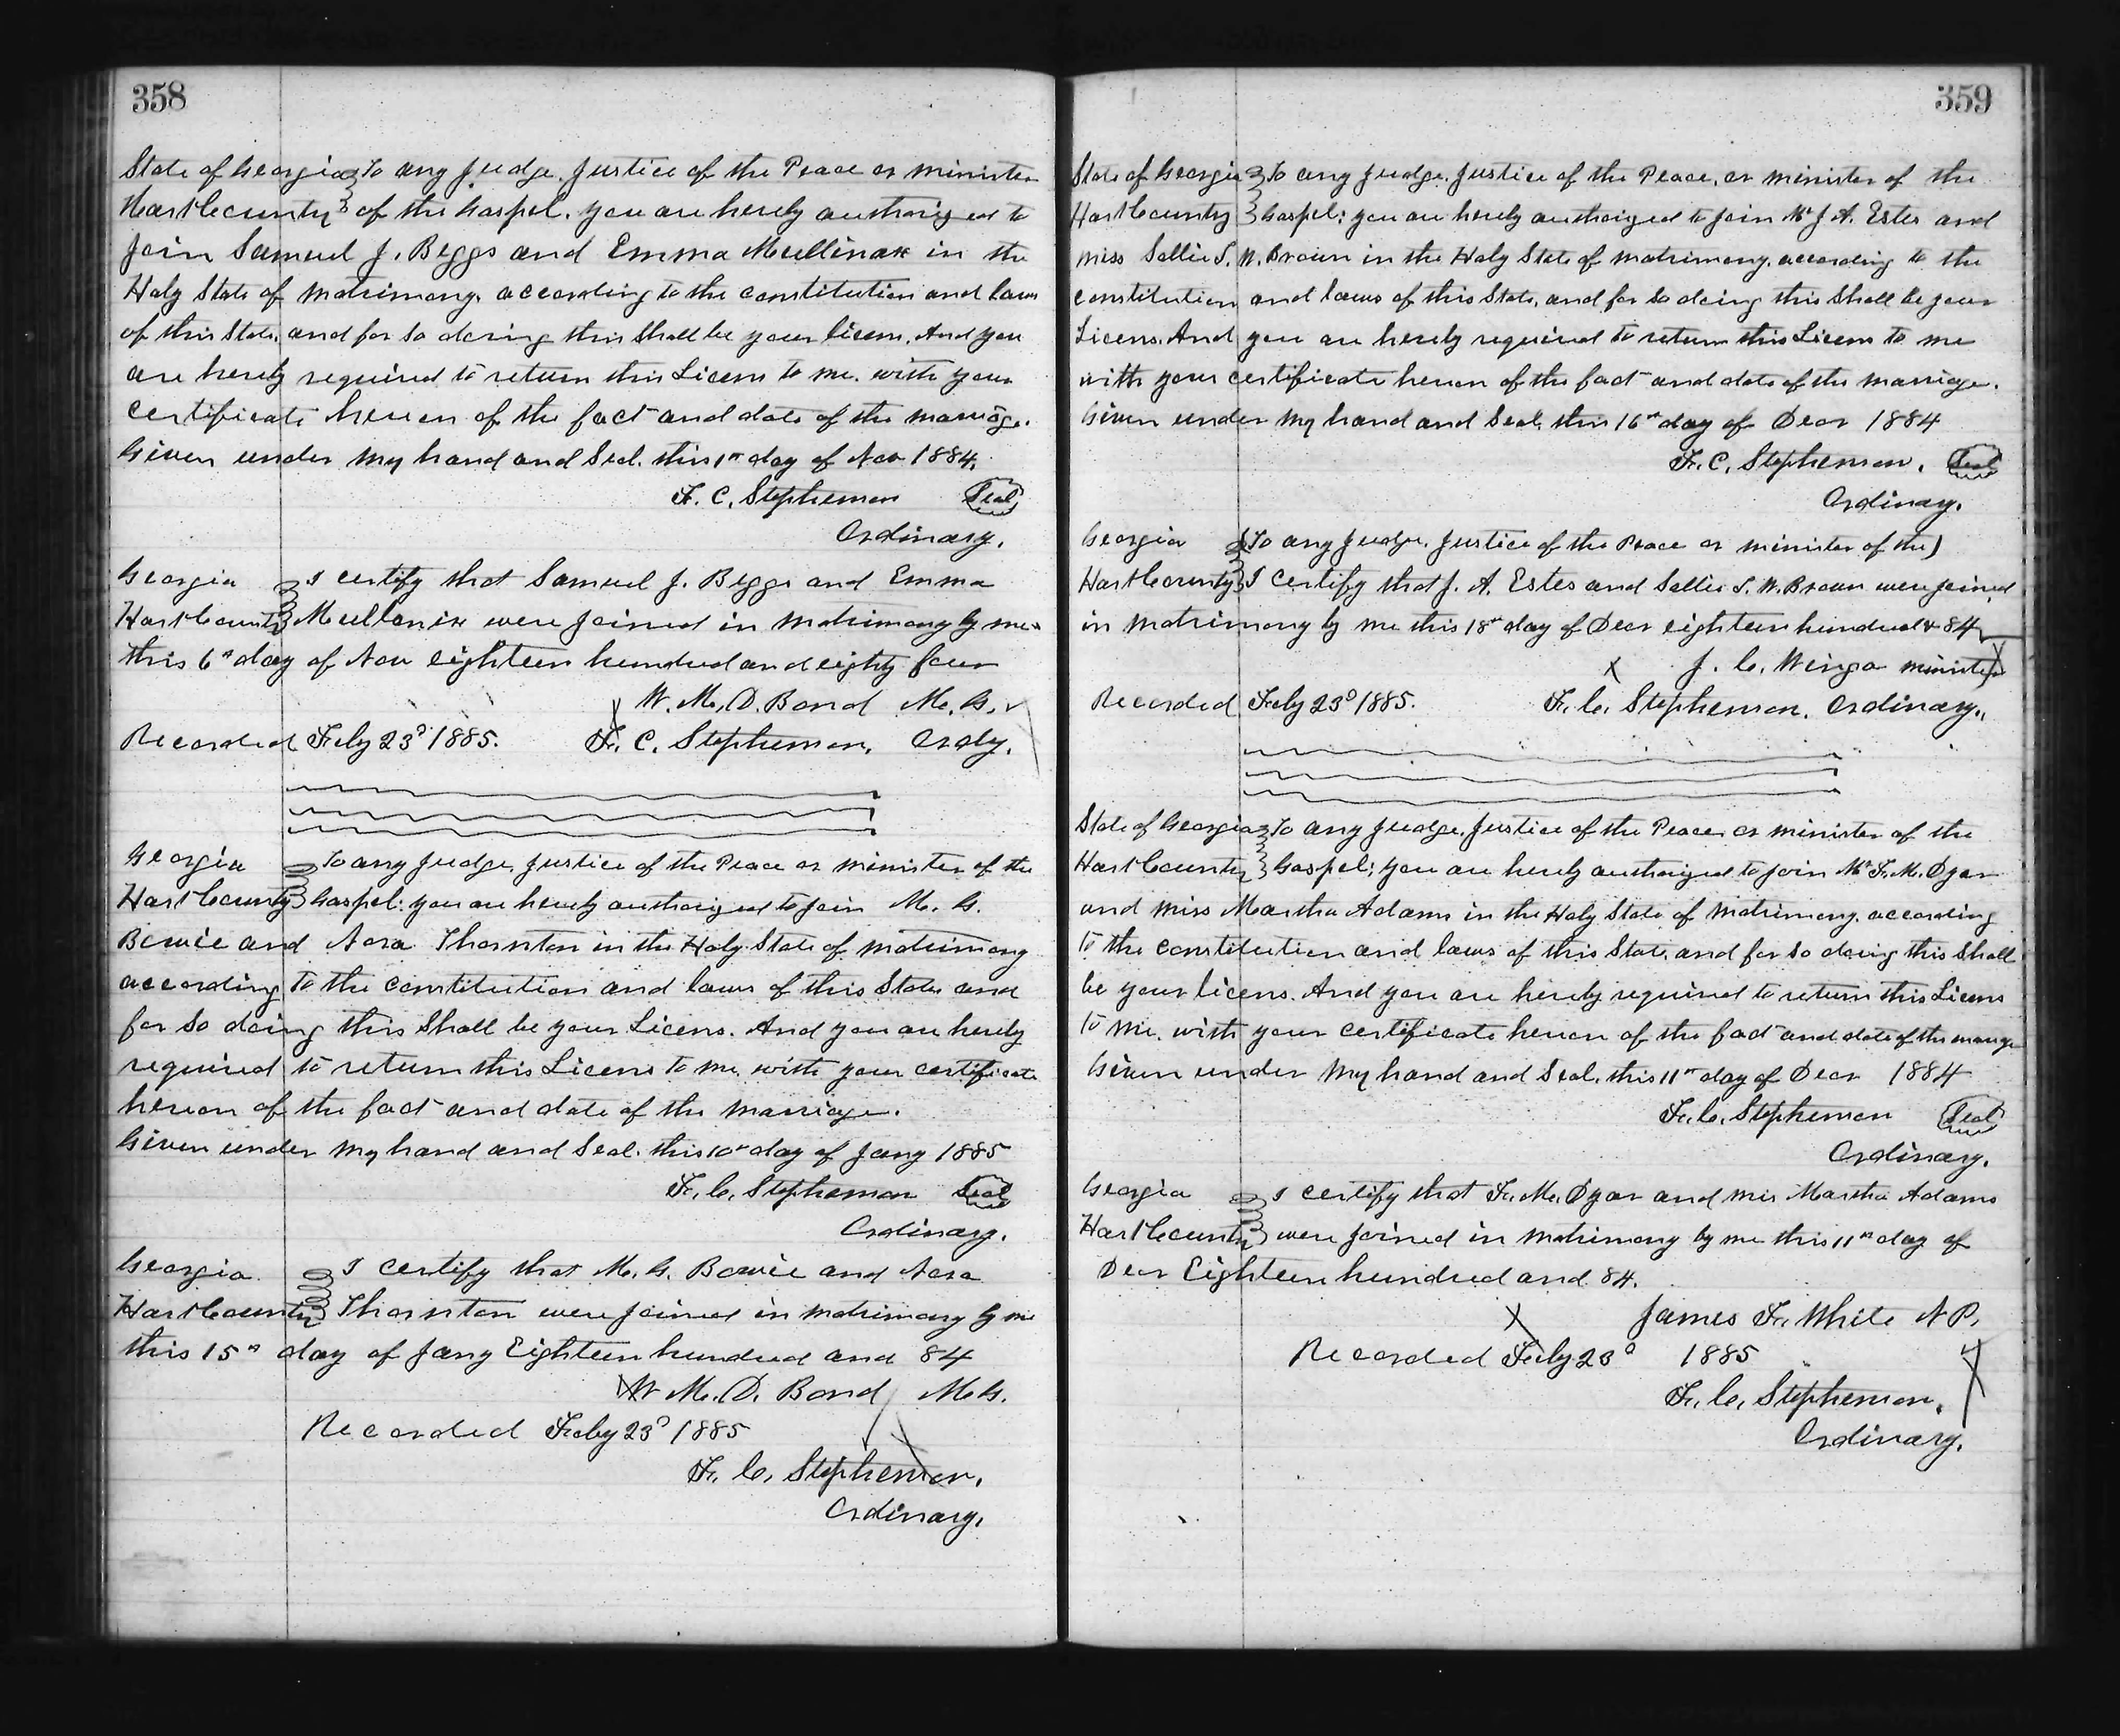 358
State of Georgia To any Judge, Justice of the Peace or minister
Hart County of the Gospel. you are hereby authorized to
join Samuel J. Beggs and Emma Mullinax in the
Holy State of matrimony. according to the constitution and laws
of this State, and for so doing this Shall be your licens, And you
are hereby required to return this Licens to me. with your
certificate hereon of the fact and date of the marriage.
Given under my hand and Seal. this 1st day of Nov 1884.
F. C. Stephenson Seal
Ordinary.
Georgia I certify that Samuel J. Beggs and Emma
Hart County Mullonix were joined in matrimony by me
this 6th day of Nov eighteen hundred and eighty four
W. M. D. Bond M. G.
Recorded Feby 23d 1885. F. C. Stephenson, Ordy.
Georgia To any Judge, Justice of the Peace or minister of the
Hart County Gospel: you are hereby authorized to join M. G.
Bowie and Nora Thornton in the Holy State of matrimony
according to the constitution and laws of this State and
for so doing this Shall be your Licens. And you are hereby
required to return this Licens to me. with your certificate
hereon of the fact and date of the marriage.
Given under my hand and Seal. this 10th day of Jany 1885
F. C. Stephenson Seal
Ordinary.
Georgia. I certify that M. G. Bowie and Nora
Hart County Thornton were joined in matrimony by me
this 15th day of Jany Eighteen hundred and 84
W. M. D. Bond M. G.
Recorded Feby 23d 1885
F. C. Stephenson.
Ordinary.
359
State of Georgia To any Judge, Justice of the Peace, or minister of the
Hart County Gospel: you are hereby authorized to join Mr J. A. Estes and
miss Sallie S. W. Brown in the Holy State of matrimony. according to the
constitution and laws of this State, and for so doing this Shall be your
Licens. And you are hereby required to return this Licens to me
with your certificate hereon of the fact and date of the marriage.
Given under my hand and Seal. this 16th day of Decr 1884
F. C. Stephenson. Seal
Ordinary.
Georgia (To any Judge, Justice of the Peace or minister of the)
Hart County I certify that J. A. Estes and Sallie S. W. Brown were joined
in matrimony by me this 18th day of Decr eighteen hundred & 84
X J. C. Wingo minister
Recorded Feby 23d 1885. F. C. Stephenson. Ordinary.
State of Georgia To any Judge, Justice of the Peace or minister of the
Hart County Gospel; you are hereby authorized to join Mr F. M. Dyar
and miss Martha Adams in the Holy State of matrimony. according
to the constitution and laws of this State, and for so doing this Shall
be your licens. And you are hereby required to return this Licens
to me. with your certificate hereon of the fact and date of the marriage
Given under my hand and Seal. this 11th day of Decr 1884
F. C. Stephenson Seal
Ordinary.
Georgia I certify that F. M. Dyar and mis Martha Adams
Hart County were joined in matrimony by me this 11th day of
Decr Eighteen hundred and 84.
X James F. White N P.
Recorded Feby 23d 1885
F. C. Stephenson.
Ordinary.